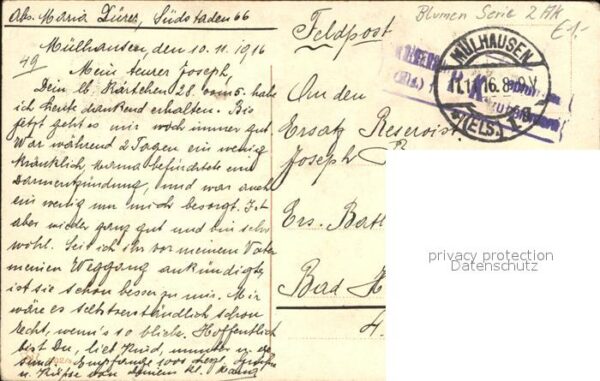 Abs. Maria Dürer, Südstaden 66
Mülhausen, den 10. 11. 1916
49
Mein teurer Joseph!
Dein lb. Kärtchen 28. vom 5. habe
ich heute dankend erhalten. Bis
jetzt geht es mir noch immer gut.
War während 2 Tagen ein wenig
kränklich, Mama befürchtete eine
Darmentzündung, und war auch
ein wenig um mich besorgt. Ist
aber wieder ganz gut und bin sehr
wohl. Seit ich ihr vor meinem Vater
meinen Weggang ankündigte,
ist sie schon besser zu mir. Mir
wäre es selbstverständlich schon
recht, wenn's so bliebe. Hoffentlich
bist Du, lieb Kind, munter u. ge-
sund. Empfange 1000 herzl. Grüße
u. Küsse von Deinem kl.
Feldpost
Blumen Serie 2 AK
€1.-
MÜLHAUSEN
11.11.16. 8-9 V.
(ELS.)
(Els.)
An den
Ersatz Reservist
Joseph
Ers. Batl
Bad
privacy protection
Datenschutz